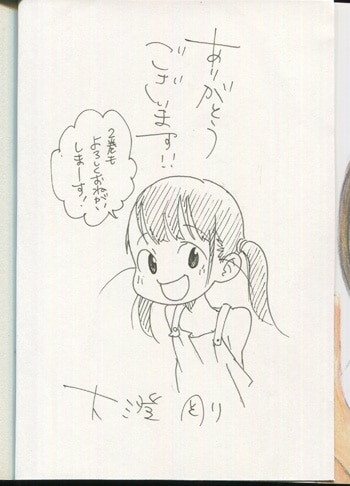 ありがとう
ございます!!
2巻も
よろしくおねがい
しまーす!